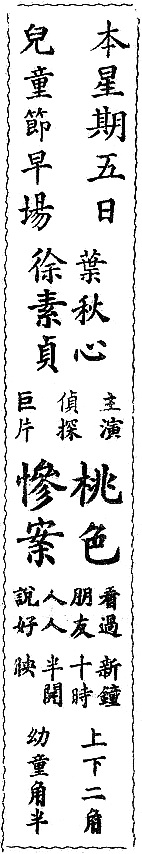 本星期五日
兒童節早場
葉秋心
徐素貞
主演
偵探
巨片
桃色
慘案
看過
朋友
人人
說好
新鐘
十時
半開
映
上下二角
幼童角半